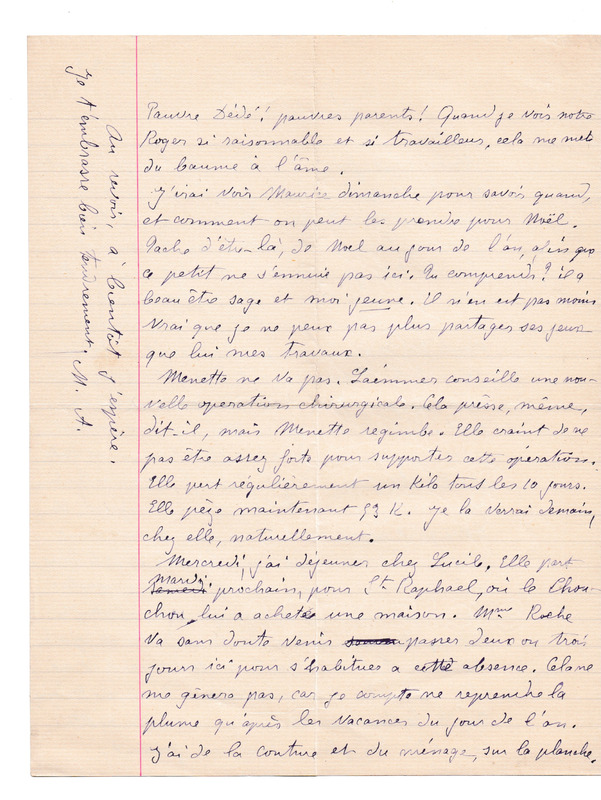 Pauvre Dédé! pauvres parents! Quand je vois notre
Roger si raisonnable et si travailleur, cela me met
du baume à l'âme.
J'irai voir Maurice dimanche pour savoir quand,
et comment on peut les prendre pour Noël.
Tache d'être là, de Noel au jour de l'an, afin que
ce petit ne s'ennuie pas ici. Tu comprends? il a
beau être sage et moi jeune. Il n'en est pas moins
vrai que je ne peux pas plus partager ses jeux
que lui mes travaux.
Menette ne va pas. conseille une nou-
velle operation chirurgicale. Cela presse, même,
dit-il, mais Menette regimbe. Elle craint de ne
pas être assez forte pour supporter cette operation.
Elle perd régulièrement un Kilo tous les 10 jours.
Elle pèse maintenant K. Je la verrai demain,
chez elle, naturellement.
Mercredi, j'ai déjeuner chez Lucile. Elle part
mardi
prochain, pour St Raphael, où le Chou-
chou lui a acheté une maison. Mme Roche
va sans doute venir passer deux ou trois
jours ici pour s'habituer a cette absence. Cela ne
me gênera pas, car je compte ne reprendre la
plume qu'après les vacances du jour de l'an.
J'ai de la couture et du ménage, sur la planche.
Au revoir, à bientôt j'espère.
Je t'embrasse bien tendrement. M. A.